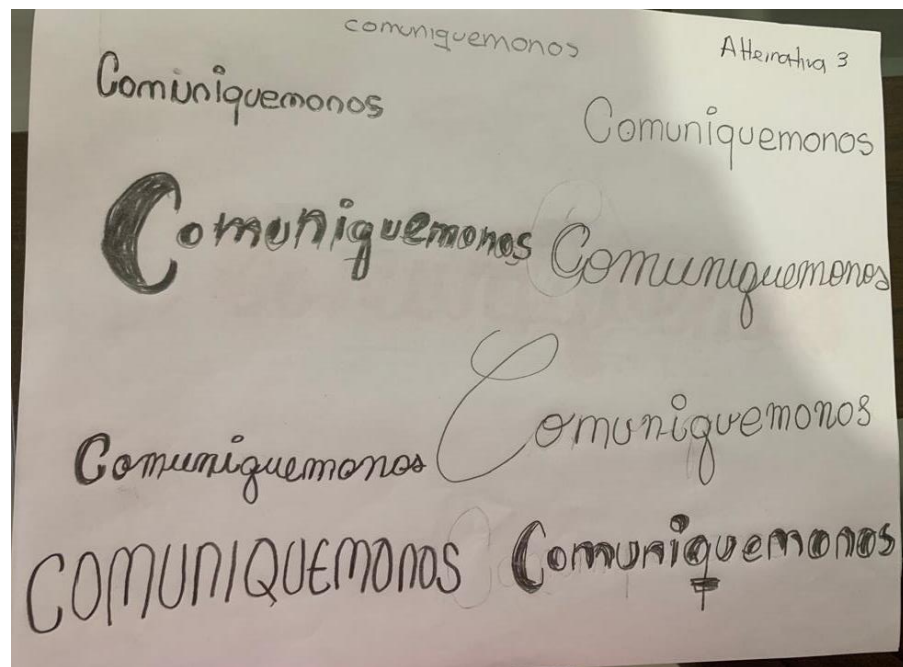 comuniquemonos
Alternativa 3
Comuniquemonos
Comuniquemonos
Comuniquemonos
Comuniquemonos
Comuniquemonos
Comuniquemonos
COMUNIQUEMONOS
Comuniquemonos